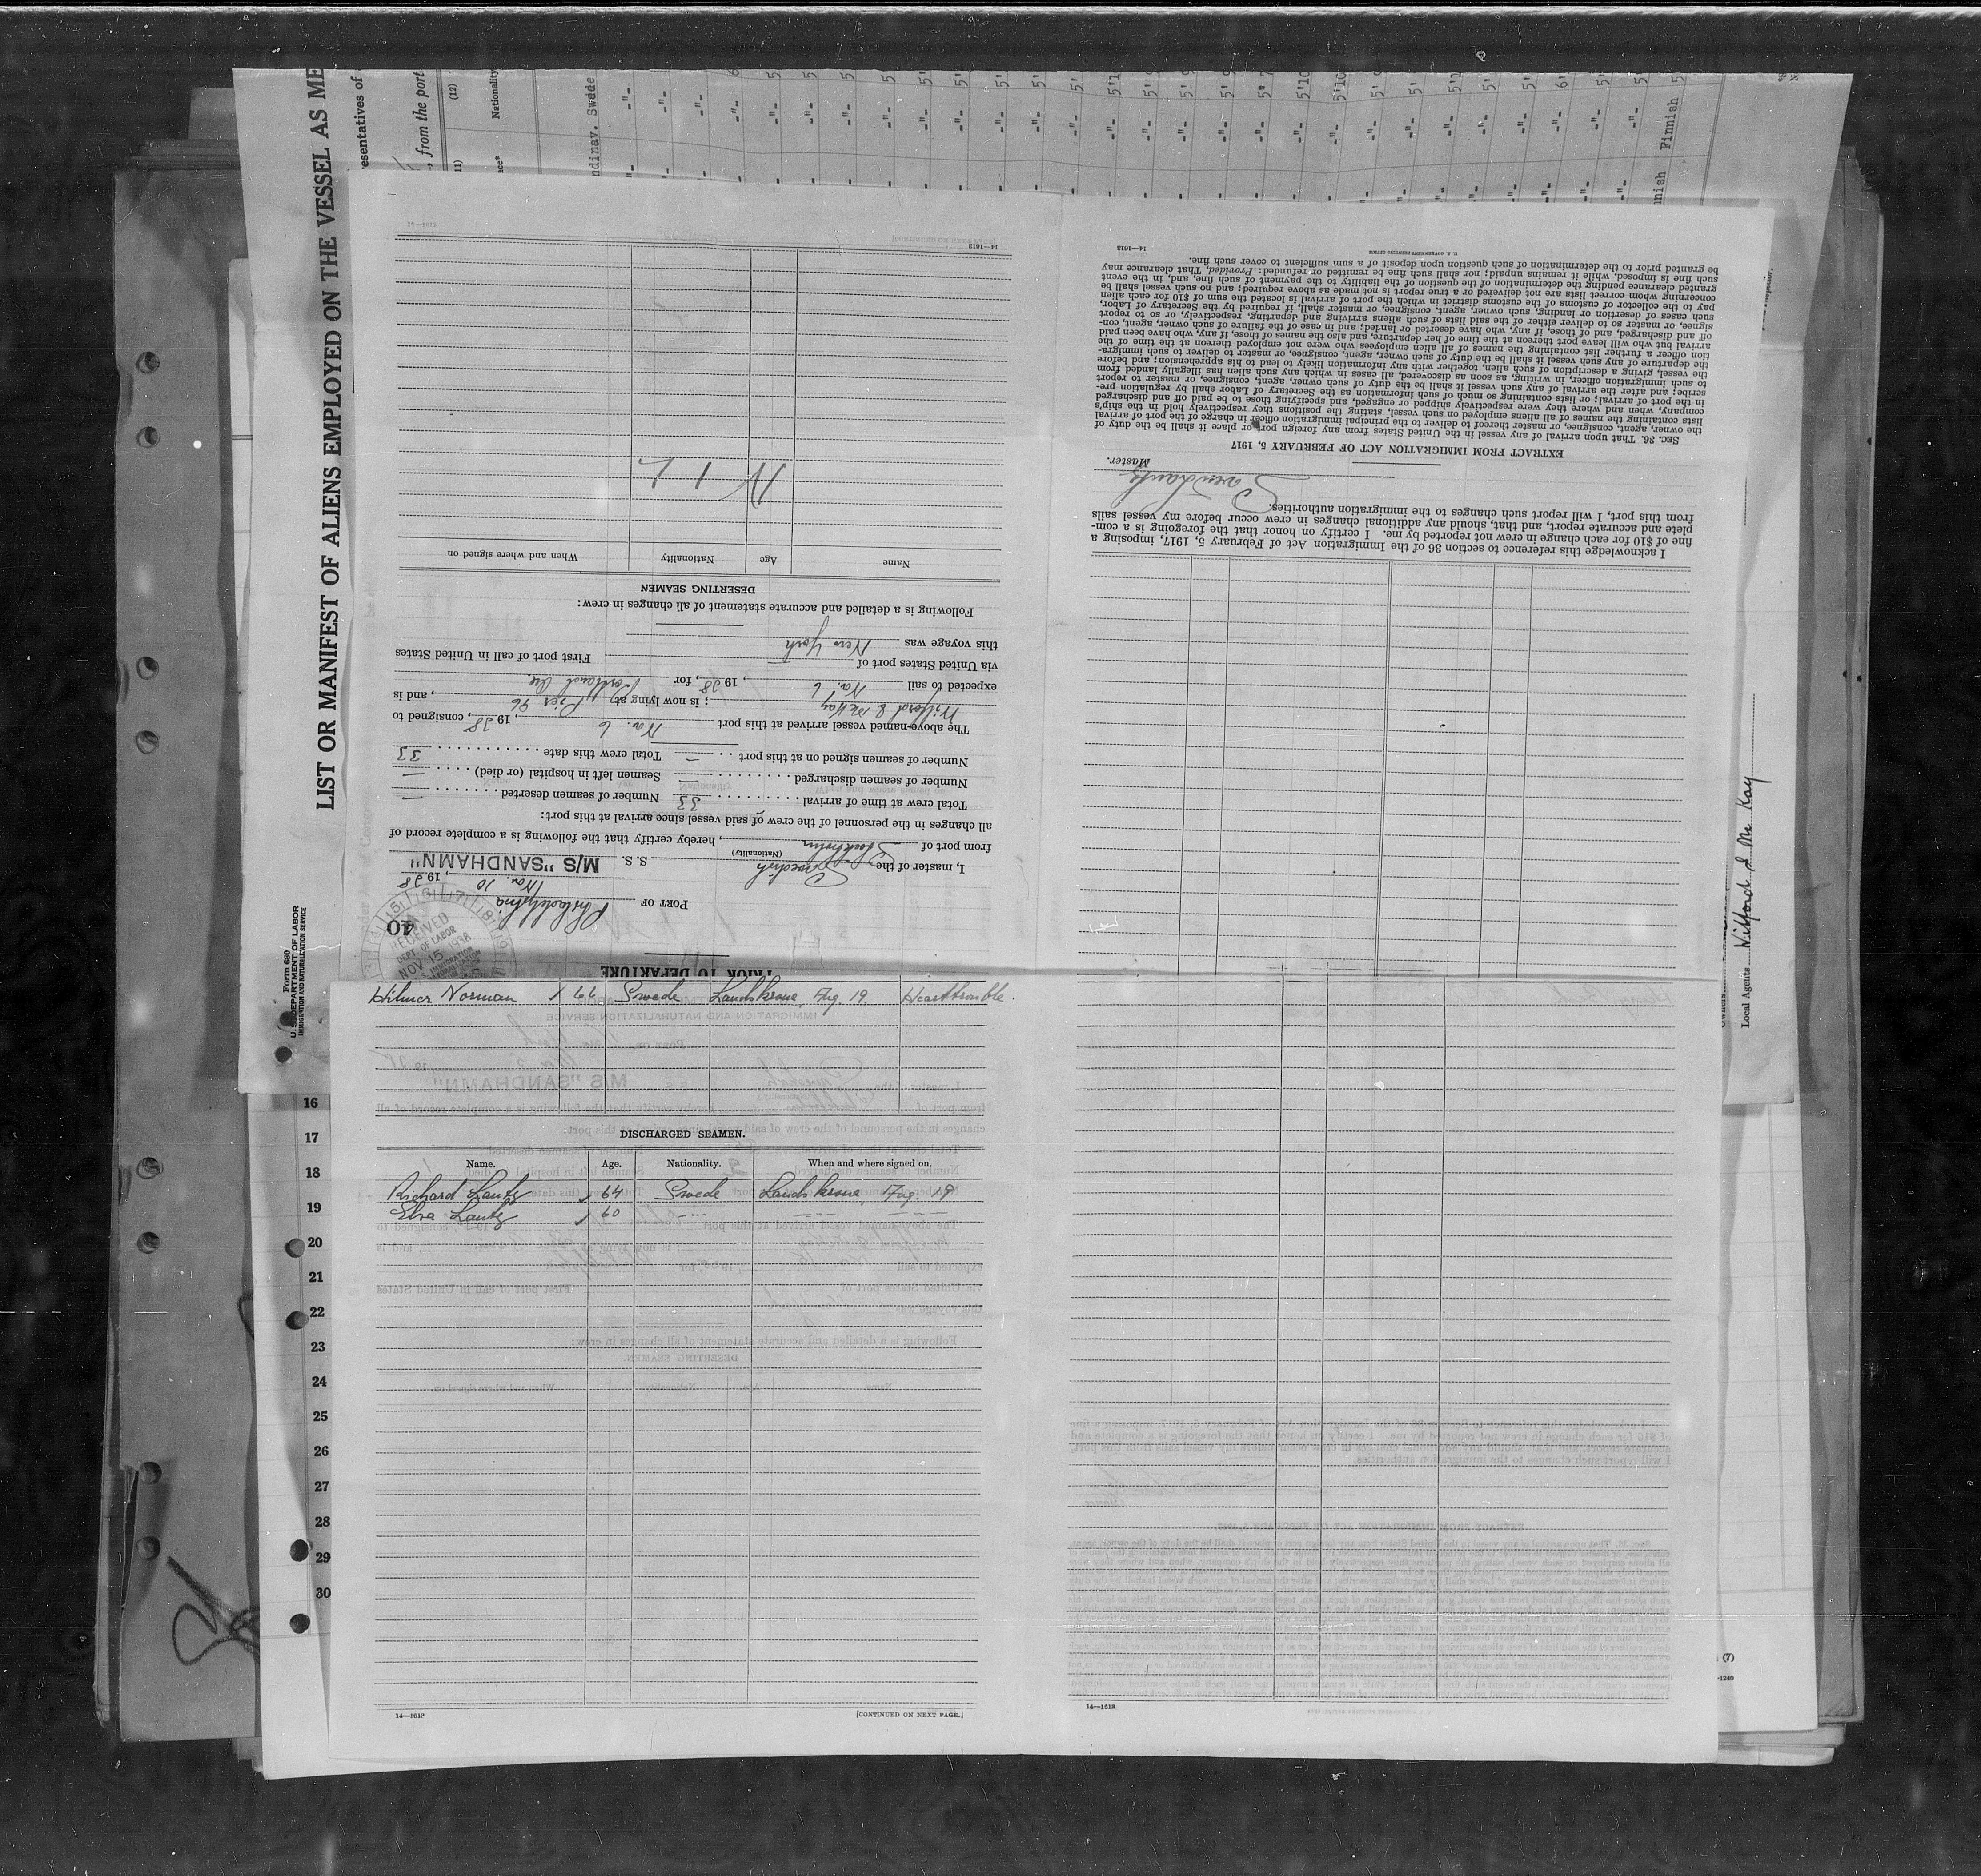 LIST OR MANIFEST OF ALIENS EMPLOYED ON THE VESSEL AS ME
esentatives of
, from the port
(12)
Nationality
11)
ndinav. Swede
nnish Finnish
Form 680
U. S. DEPARTMENT OF LABOR
IMMIGRATION AND NATURALIZATION SERVICE
Local Agents Wilford & Mc Kay
PRIOR TO DEPARTURE
40
RECEIVED
DEPT OF LABOR
NOV 15 1938
PORT OF Philadelphia
Nov. 10, 1938
I, master of the Swedish S. S. M/S "SANDHAMN"
(Nationality)
from port of Stockholm, hereby certify that the following is a complete record of
all changes in the personnel of the crew of said vessel since arrival at this port:
Total crew at time of arrival 33 Number of seamen deserted —
Number of seamen discharged — Seamen left in hospital (or died) —
Number of seamen signed on at this port — Total crew this date 33
The above-named vessel arrived at this port Nov. 6, 1938, consigned to
Wilford & McKay; is now lying at Pier 96, and is
expected to sail Nov. , 1938, for Portland
via United States port of — First port of call in United States
this voyage was New York
Following is a detailed and accurate statement of all changes in crew:
DESERTING SEAMEN
Name Age Nationality When and where signed on
N I L
14—1613
I acknowledge this reference to section 36 of the Immigration Act of February 5, 1917, imposing a
fine of $10 for each change in crew not reported by me. I certify on honor that the foregoing is a com-
plete and accurate report, and that, should any additional changes in crew occur before my vessel sails
from this port, I will report such changes to the immigration authorities.
Sven Lantz
Master.
EXTRACT FROM IMMIGRATION ACT OF FEBRUARY 5, 1917
SEC. 36. That upon arrival of any vessel in the United States from any foreign port or place it shall be the duty of
the owner, agent, consignee, or master thereof to deliver to the principal immigration officer in charge of the port of arrival
lists containing the names of all aliens employed on such vessel, stating the positions they respectively hold in the ship's
company, when and where they were respectively shipped or engaged, and specifying those to be paid off and discharged
in the port of arrival; or lists containing so much of such information as the Secretary of Labor shall by regulation pre-
scribe; and after the arrival of any such vessel it shall be the duty of such owner, agent, consignee, or master to report
to such immigration officer, in writing, as soon as discovered, all cases in which any such alien has illegally landed from
the vessel, giving a description of such alien, together with any information likely to lead to his apprehension; and before
the departure of any such vessel it shall be the duty of such owner, agent, consignee, or master to deliver to such immigra-
tion officer a further list containing the names of all alien employees who were not employed thereon at the time of the
arrival but who will leave port thereon at the time of her departure, and also the names of those, if any, who have been paid
off and discharged, and of those, if any, who have deserted or landed; and in case of the failure of such owner, agent, con-
signee, or master so to deliver either of the said lists of such aliens arriving and departing, respectively, or so to report
such cases of desertion or landing, such owner, agent, consignee, or master shall, if required by the Secretary of Labor,
pay to the collector of customs of the customs district in which the port of arrival is located the sum of $10 for each alien
concerning whom correct lists are not delivered or a true report is not made as above required; and no such vessel shall be
granted clearance pending the determination of the question of the liability to the payment of such fine, and, in the event
such fine is imposed, while it remains unpaid; nor shall such fine be remitted or refunded: Provided, That clearance may
be granted prior to the determination of such question upon deposit of a sum sufficient to cover such fine.
U. S. GOVERNMENT PRINTING OFFICE
14—1613
Hilmer Norman 66 Swede Landskrona, Aug. 19 Hearttrouble.
DISCHARGED SEAMEN.
Name. Age. Nationality. When and where signed on.
Richard Lantz 64 Swede Landskrona, Aug. 19
Elsa Lantz 60 —"— —"— —"—
16
17
18
19
20
21
22
23
24
25
26
27
28
29
30
14—1613
[CONTINUED ON NEXT PAGE.]
14—1613
-1240